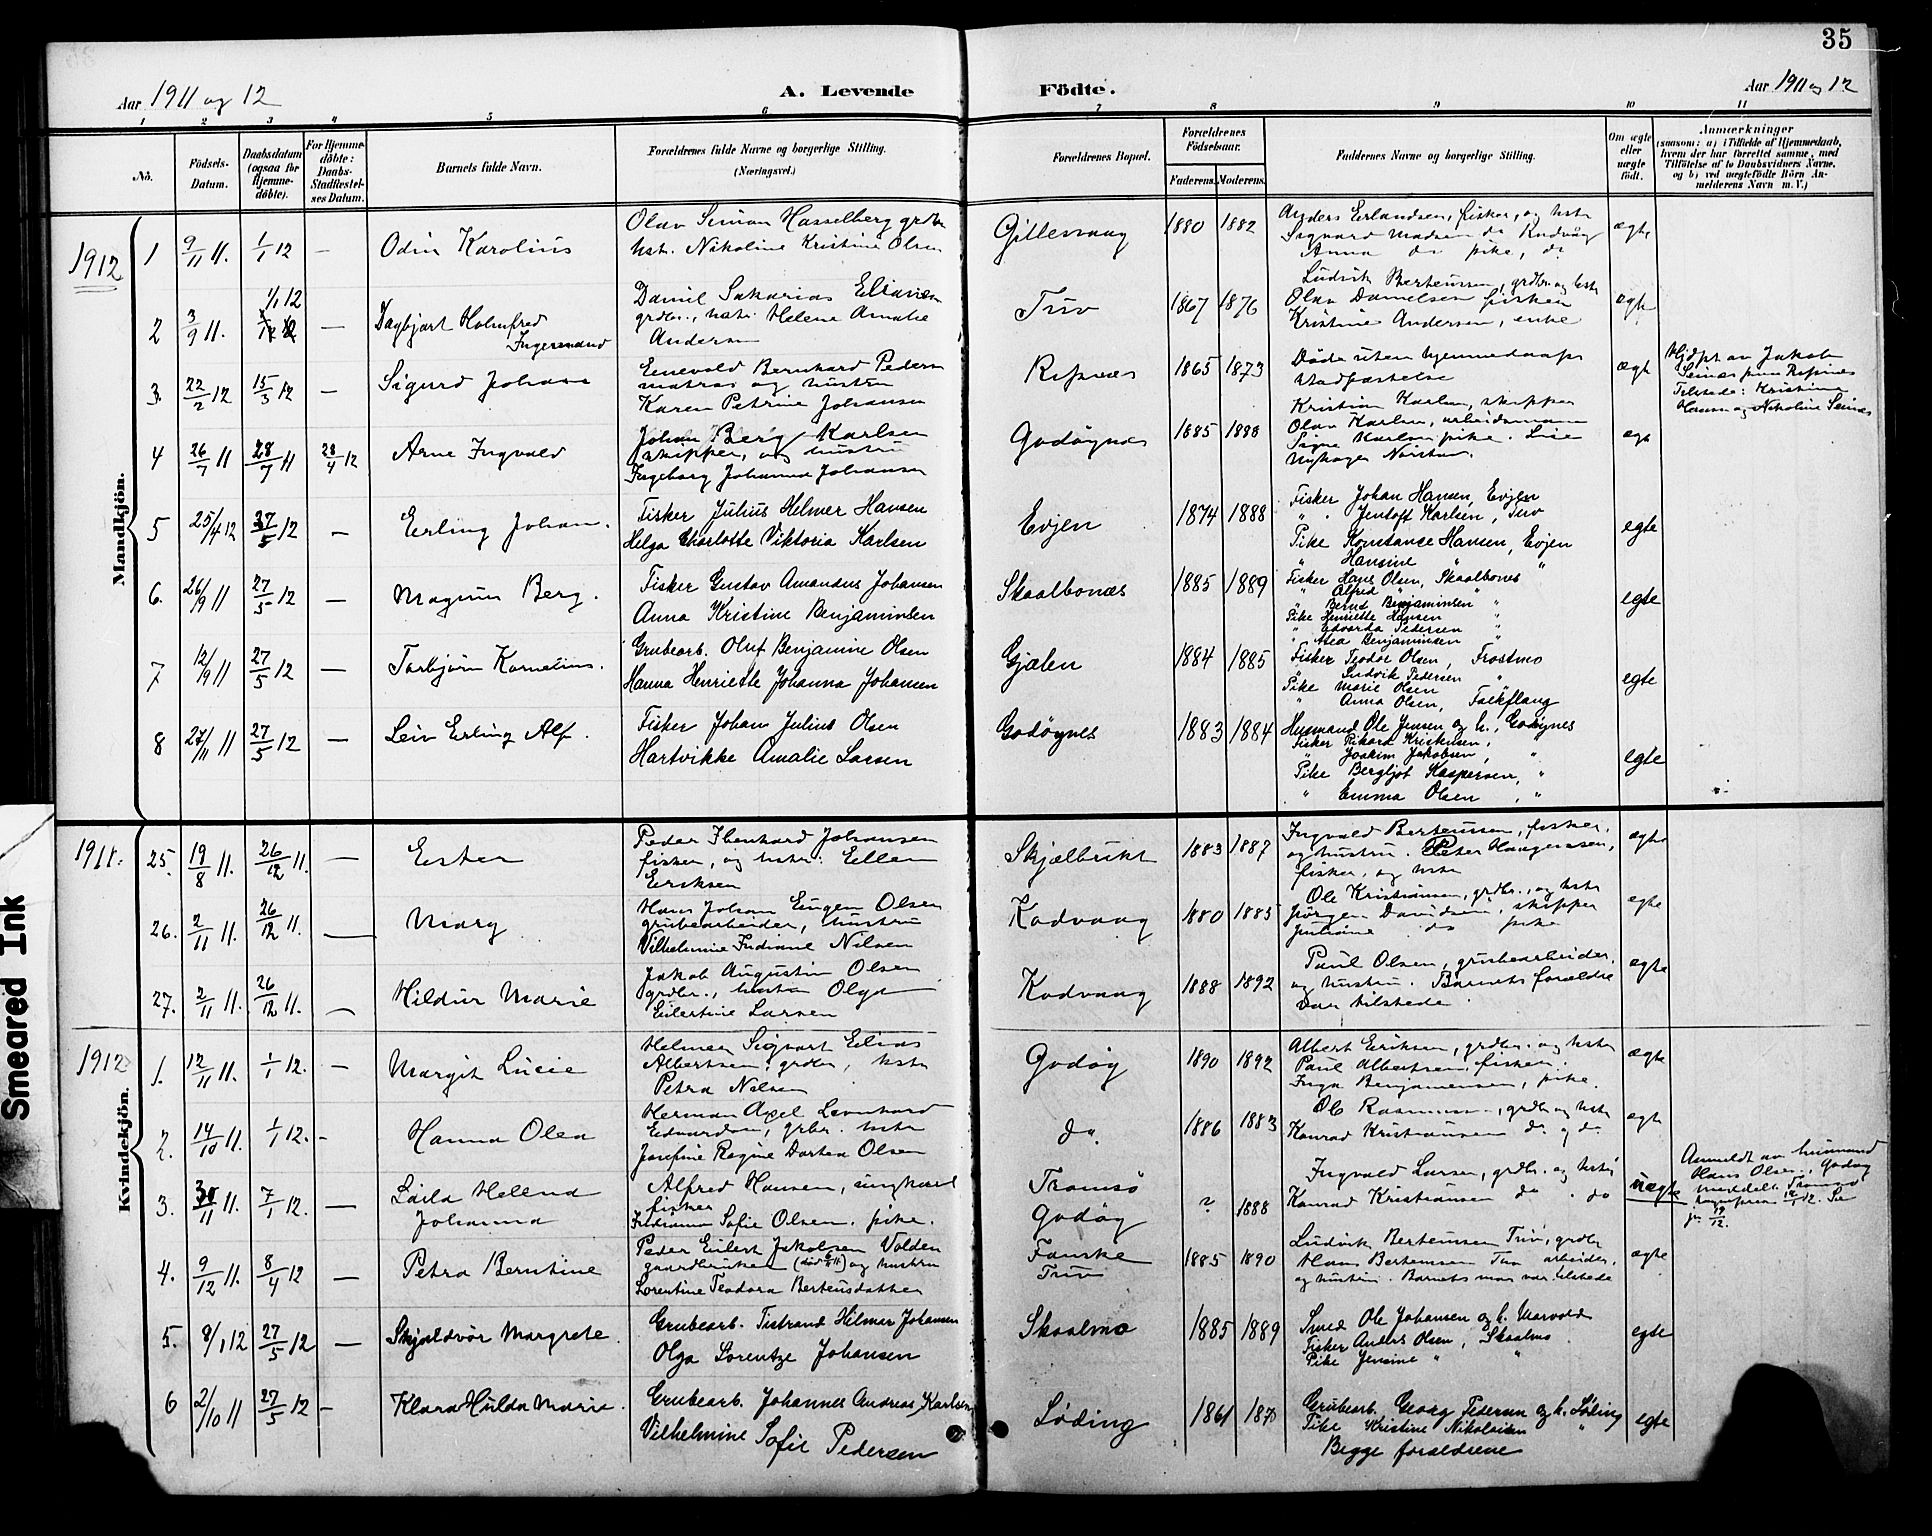 35
Aar 1911 og 12
A. Levende
Födte.
Aar 1911 og 12
1 2 3 4 5 6 7 8 9 10 11
Nö.
Födsels-Datum.
Daabsdatum (ogsaa for Hjemme-döbte).
For Hjemme-döbte: Daabs-Stadfæstel-ses Datum.
Barnets fulde Navn.
Forældrenes fulde Navne og borgerlige Stilling.
(Næringsvei.)
Forældrenes Bopæl.
Forældrenes Födselsaar.
Faderens. Moderens.
Faddernes Navne og borgerlige Stilling.
Om ægte eller uægte födt.
Anmærkninger
(saasom: a) i Tilfælde af Hjemmedaab,
hvem der har forrettet samme, med
Tilföielse af to Daabsvidners Navne,
og b) ved uægtefödte Börn An-
melderens Navn m. V.)
Mandkjön.
1912
1 9/11 11. 1/1 12 — Odin Karolius
Olav Simon Hasselberg grdbr
hst. Nikoline Kristine Olsen
Gillesvaag 1880 1882
Anders Erlandsen, fisker, og hstr
Sigvard Madsen do Kodvåg
Anna do pike, do
ægte
2 3/9 11. 1/1 12 — Dagbjart Holmfred
Ingeranand
Daniel Sakarias Eliassen
grdbr., hstr. Helene Amalie
Andersen
Tuv 1867 1876
Ludvik Berteussen, grdbr. og hstr
Olav Danielsen fisker
Kristine Andersen, enke
ægte
3. 22/2 12 15/3 12 — Sigurd Johan
Enevold Bernhard Pedersen
matros og hustru
Karen Petrine Johansen
Refsnes 1865 1873
Døde uten hjemmedaaps
stadfæstelse
ægte
Hjdpt av Jakob
Seines Refsnes
Tilstede: Kristine
Hansen og Nikoline Seines
4 26/7 11 28/7 11 28/4 12 Arne Ingvald
Johan Berg Karlsen
skipper, og hustru
Ingeborg Johanna Johansen
Godøynes 1885 1888
Kristian Karlsen, skipper
Olav Karlsen, arbeidsmann
Signe Karlsen pike.
ægte
5 25/4 12 27/5 12 — Erling Johan.
Fisker Julius Helmer Hansen
Helga Charlotte Viktoria Karlsen
Evjen 1874 1888
Fisker Johan Hansen, Evjen
" Jentoft Karlsen, Tuv
Pike Konstance Hansen, Evjen
" Hansine " "
egte
6. 26/9 11 27/5 12 — Magnus Berg.
Fisker Gustav Amandus Johansen
Anna Kristine Benjaminsen
Skaalbones 1885 1889
Fisker Hans Olsen, Skaalbones
" Alfred " "
" Bernt Benjaminsen "
Pike Henriette Hansen "
" Edvarda Pedersen "
" Alea Benjaminsen "
egte
7 12/9 11 27/5 12 — Torbjørn Kornelius.
Grubearb. Oluf Benjamine Olsen
Hanna Henriette Johanna Johansen
Gjælen 1884 1885
Fisker Teodor Olsen, Frostmo
" Ludvik Pedersen "
Pike Marie Olsen
" Anna Olsen, Falkflaug
egte
8 27/11 11 27/5 12 — Leiv Erling Alf.
Fisker Johan Julius Olsen
Hartvikke Amalie Larsen
Godøynes 1883 1884
Husmand Ole Jensen og h., Godøynes
Fisker Rikard Kristensen,
" Joakim Jakobsen, "
Pike Bergljot Kaspersen, "
" Emma Olsen, "
egte
Kvindekjön.
1911.
25. 19/8 11. 26/12 11. — Ester
Peder Ibenhard Johansen
fisker, og hstr: Ellen
Eriksen
Skjælbukt 1883 1887
Ingvald Berteussen, fisker,
og hustru. Peter Haagensen,
fisker, og hstr
ægte
26. 2/11 11. 26/12 11. — Mary
Hans Johan Eugen Olsen
grubearbeider, hustru
Vilhelmine Indiane Nilsen
Kodvaag 1880 1885
Ole Kristiansen, grdbr., og hstr
Jørgen Davidsen, skipper
Juliane do pike
egte
27. 2/11 11. 26/12 11. — Hildur Marie
Jakob Augustin Olsen
grdbr., hustru Olga
Eilertine Larsen
Kodvaag 1888 1892
Paul Olsen, grubearbeider,
og hustru. Barnets forældre
var tilstede.
ægte
1912
1. 12/11 11. 1/1 12. — Margit Lucie
Helmer Sigvart Elias
Albertsen, grdbr, hstr
Petra Nilsen
Godøy 1890 1892
Albert Eriksen, grdbr. og hstr
Paul Albertsen, fisker.
Inga Benjaminsen, pike.
ægte
2. 14/10 11. 1/1 12. — Hanna Olea
Herman Axel Leonhard
Edvardsen, grbr. hstr
Josefine Regine Dortea Olsen
do. 1886 1883
Ole Rasmussen, grdbr og hstr
Konrad Kristiansen do og do
egte
3. 30/11 11. 7/1 12. — Laila Helena
Johanna
Alfred Hansen, ungkarl
fisker
Indianna Sofie Olsen. pike.
Tromsø
Godøy ? 1888
Ingvald Larsen, grdbr. og hstr
Konrad Kristiansen do. do
uægte
Anmeldt av husmand
Hans Olsen, Godøy
meddelt Tromsø
4. 9/12 11. 8/4 12 — Petra Berntine
Peder Eilert Jakobsen Volden
gaardbruker (død) og hustru
Lorentine Teodora Berteusdatter
Fauske
Tuv 1885 1890
Ludvik Berteussen Tuv, grdbr
Hans Berteussen Tuv arbeider,
og hustru. Barnets mor var tilstede
ægte
5. 8/1 12 27/5 12 — Skjoldvør Margrete.
Grubearb. Tistrand Hilmar Johansen
Olga Lorentze Johansen
Skaalmo 1885 1889
Smed Ole Johansen og h. Marvold
Fisker Anders Olsen, Skaalmo
Pike Jensine " "
egte
6 2/10 11 27/5 12 — Klara Hulda Marie.
Grubearb. Johannes Andreas Karlsen
Vilhelmine Sofie Pedersen
Løding 1861 1870
Grubearb. Georg Pedersen og h. Løding
Pike Kristine Nikolaisen "
Begge forældrene
egte
Smeared Ink